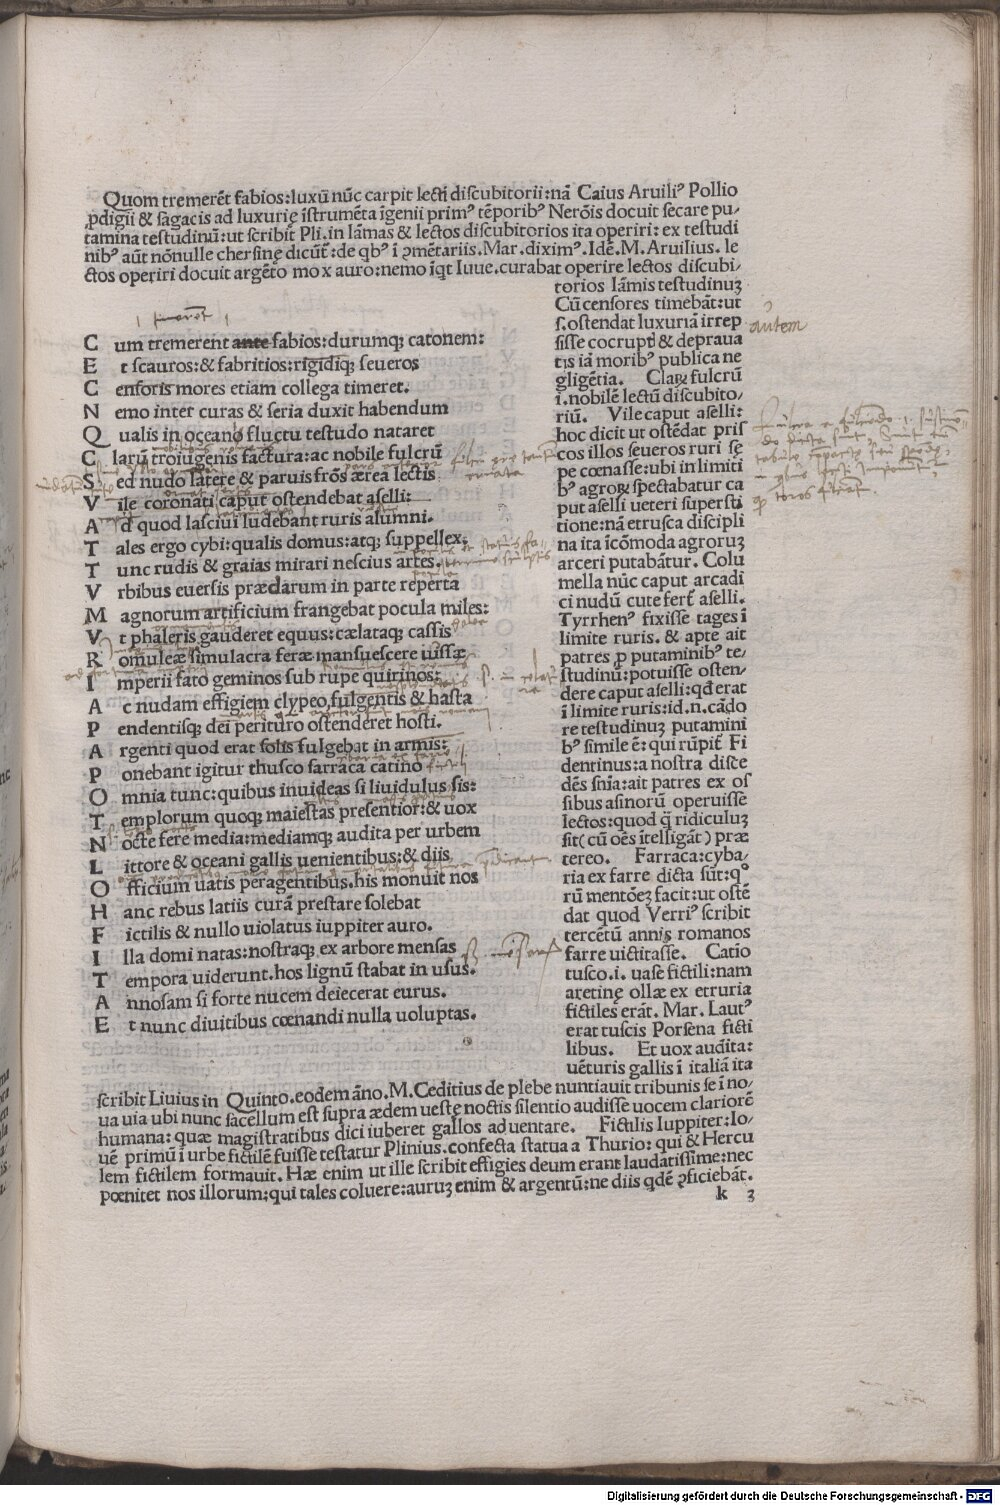 Quom tremerēt fabios:luxū nūc carpit lecti discubitorii:nā Caius Aruiliꝰ Pollio
ꝓdigii & sagacis ad luxurię īstrumēta īgenii primꝰ tēporibꝰ Nerōis docuit secare pu-
tamina testudinū:ut scribit Pli.in lāmas & lectos discubitorios ita operiri: ex testudi
nibꝰ aūt nōnulle chersinę dicūt̄:de qbꝰ ī ꝯmētariis.Mar.diximꝰ.Idē.M.Aruilius. le
ctos operiri docuit argēto mox auro:nemo īqt Iuue.curabat operire lectos discubi-
torios lāmis testudinuꝫ
Cū censores timebāt:ut
s.ostendat luxuriā irrep
sisse cocrupti & depraua
tis iā moribꝰ publica ne
gligētia. Clarꝝ fulcrū
i.nobilē lectū discubito-
riū. Vile caput aselli:
hoc dicit ut ostēdat pris
cos illos seueros ruri sę
pe cœnasse:ubi in limiti
bꝰ agroꝝ spectabatur ca
put aselli ueteri supersti
tione:nā etrusca discipli
na ita īcōmoda agroruꝫ
arceri putabātur. Colu
mella nūc caput arcadi
ci nudū cute fert̄ aselli.
Tyrrhenꝰ fixisse tages ī
limite ruris. & apte ait
patres p putaminibꝰ te-
studinū:potuisse osten-
dere caput aselli:qđ erat
ī limite ruris:id.n.cādo
re testudinuꝫ putamini
bꝰ simile ē: qui rūpit̄ Fi
dentinus:a nostra disce
dēs snīa:ait patres ex os
sibus asinorū operuisse
lectos:quod q̄ ridiculuꝫ
sit(cū oēs ītelligāt) præ
tereo. Farraca:cyba-
ria ex farre dicta sūt:qꝰ
rū mentōeꝫ facit:ut ostē
dat quod Verriꝰ scribit
tercētū annis romanos
farre uictitasse. Catio
tusco.i.uase fictili:nam
aretinę ollæ ex etruria
fictiles erāt. Mar. Lautꝰ
erat tuscis Porsena ficti
libus. Et uox audita:
uēturis gallis ī italiā ita
autem
C um tremerent ante fabios:durumqꝫ catonem:
E t scauros:& fabritios:rigidiqꝫ seueros
C ensoris mores etiam collega timeret.
N emo inter curas & seria duxit habendum
Q ualis in oceano fluctu testudo nataret
C larū troiugenis factura:ac nobile fulcrū
S ed nudo latere & paruis frōs ærea lectis
V ile coronati caput ostendebat aselli:
A d quod lasciui ludebant ruris alumni.
T ales ergo cybi:qualis domus:atqꝫ suppellex:
T unc rudis & graias mirari nescius artes.
V rbibus euersis prædarum in parte reperta
M agnorum artificium frangebat pocula miles:
V t phaleris gauderet equus:cælataqꝫ cassis
R omuleæ simulacra feræ mansuescere iussæ
I mperii fato geminos sub rupe quirinos:
A c nudam effigiem clypeo fulgentis & hasta
P endentisqꝫ dei perituro ostenderet hosti.
A rgenti quod erat solis fulgebat in armis:
P onebant igitur thusco farraca catino
O mnia tunc:quibus inuideas si liuidulus sis:
T emplorum quoqꝫ maiestas presentior:& uox
N octe fere media:mediamqꝫ audita per urbem
L ittore & oceani gallis uenientibus:& diis
O fficium uatis peragentibus.his monuit nos
H anc rebus latiis curā prestare solebat
F ictilis & nullo uiolatus iuppiter auro.
I lla domi natas:nostraqꝫ ex arbore mensas
T empora uiderunt.hos lignū stabat in usus.
A nnosam si forte nucem deiecerat eurus.
E t nunc diuitibus cœnandi nulla uoluptas.
scribit Liuius in Quinto.eodem āno.M.Ceditius de plebe nuntiauit tribunis se ī no-
ua uia ubi nunc sacellum est supra ædem uestę noctis silentio audisse uocem clariorē
humana: quæ magistratibus dici iuberet gallos aduentare. Fictilis Iuppiter:Io-
uē primū ī urbe fictilē fuisse testatur Plinius.confecta statua a Thurio: qui & Hercu
lem fictilem formauit. Hæ enim ut ille scribit effigies deum erant laudatissime:nec
pœnitet nos illorum:qui tales coluere:auruꝫ enim & argentū:ne diis qdē ꝯficiebāt.
k 3
Digitalisierung gefördert durch die Deutsche Forschungsgemeinschaft - DFG